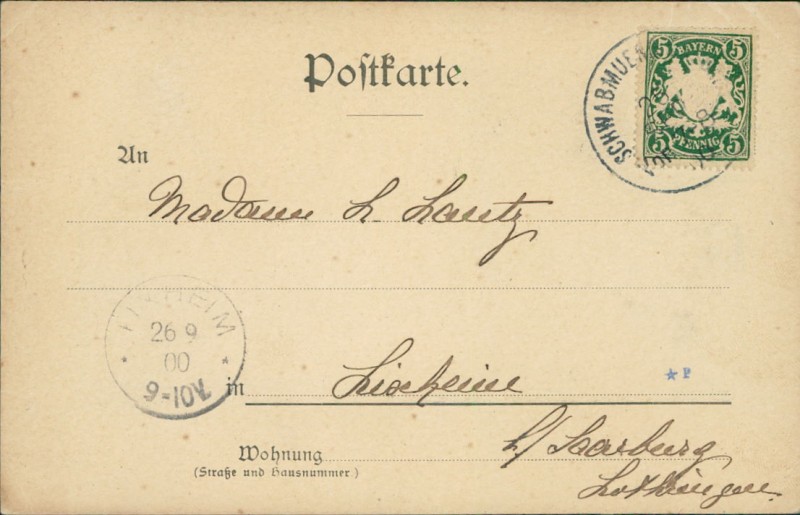 Postkarte.
5 BAYERN 5
5 PFENNIG 5
An
Madame L. Lantz
26 9
00
9-10V.
in Lixheim
* P
b/ Saarburg
Wohnung
(Straße und Hausnummer)
Lothringen.